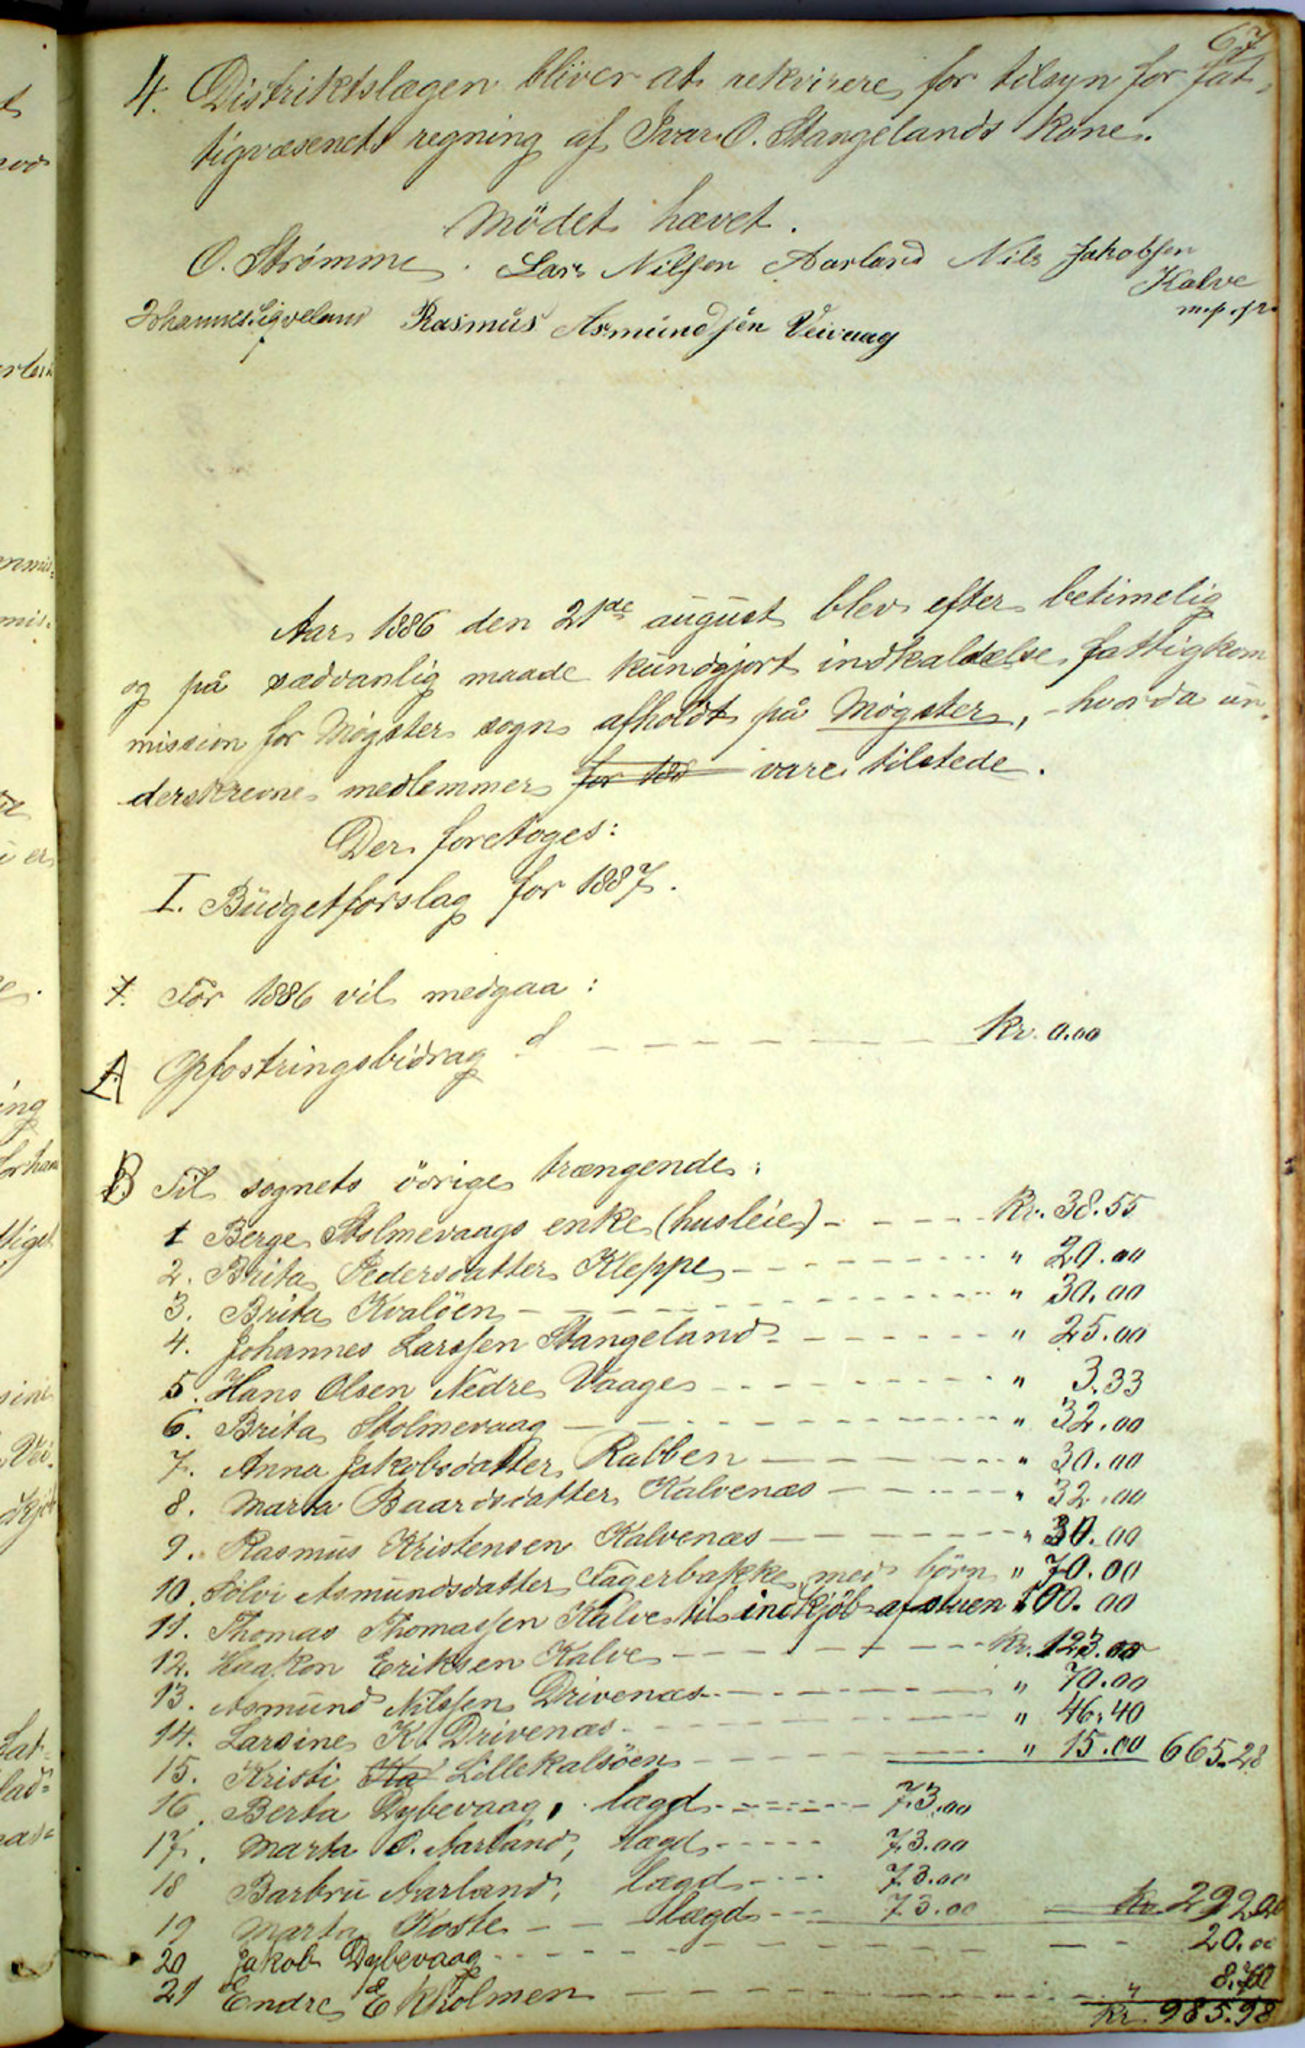 67
4. Distriktslægen bliver at rekvirere for tilsyn for fat-
tigvæsenets regning af Ivar O. Stangelands kone.
Mödet hævet.
O. Strømme. Lars Nilsen Aarland Nils Jakobsen
Kalve
m.p.p.
Johannes Ligvelani Rasmus Asmundsen Veivaag
Aar 1886 den 21de august blev efter betimelig
og på sædvanlig maade kundgjort indkaldelse fattigkom
mission for Møgster sogn afholdt på Møgster, - hvorda un-
derskrevne medlemmer for 188 vare tilstede.
Der foretoges:
I. Budgetforslag for 1887.
For 1886 vil medgaa:
A Opfostringsbidrag kr. 0.00
B Til sognets övrige trængende:
1 Berge Stolmevaags enke (husleie) - kr. 38.55
2. Brita Pedersdatter Kleppe - " 20.00
3. Brita Kvalöen - " 30.00
4. Johannes Larssen Stangeland - " 25.00
5. Hans Olsen Nedre Vaage - " 3.33
6. Brita Stolmevaag - " 32.00
7. Anna Jakobsdatter Rabben - " 30.00
8. Marta Baardsdatter Kalvenæs - " 32.00
9. Rasmus Kristensen Kalvenæs - " 30.00
10. Sölvi Asmundsdatter Fagerbakke, med börn " 70.00
11. Thomas Thomassen Kalve til indkjöb af stuen 100.00
12. Haakon Eriksen Kalve - kr. 123.00
13. Asmund Nilssen Drivenæs - " 70.00
14. Larsine K. Drivenæs - " 46.40
15. Kristi Ka Lillekalsöen - " 15.00 665.28
16. Berta Dybevaag, lægd - 73.00
17. Marta O. Aarland, lægd - 73.00
18 Barbru Aarland, lægd - 73.00
19 Marta Koste - lægd - 73.00 kr 292.00
20 Jakob Dybevaag - 20.00
21 Endre Ekholmen - " 8.70
kr. 985.98